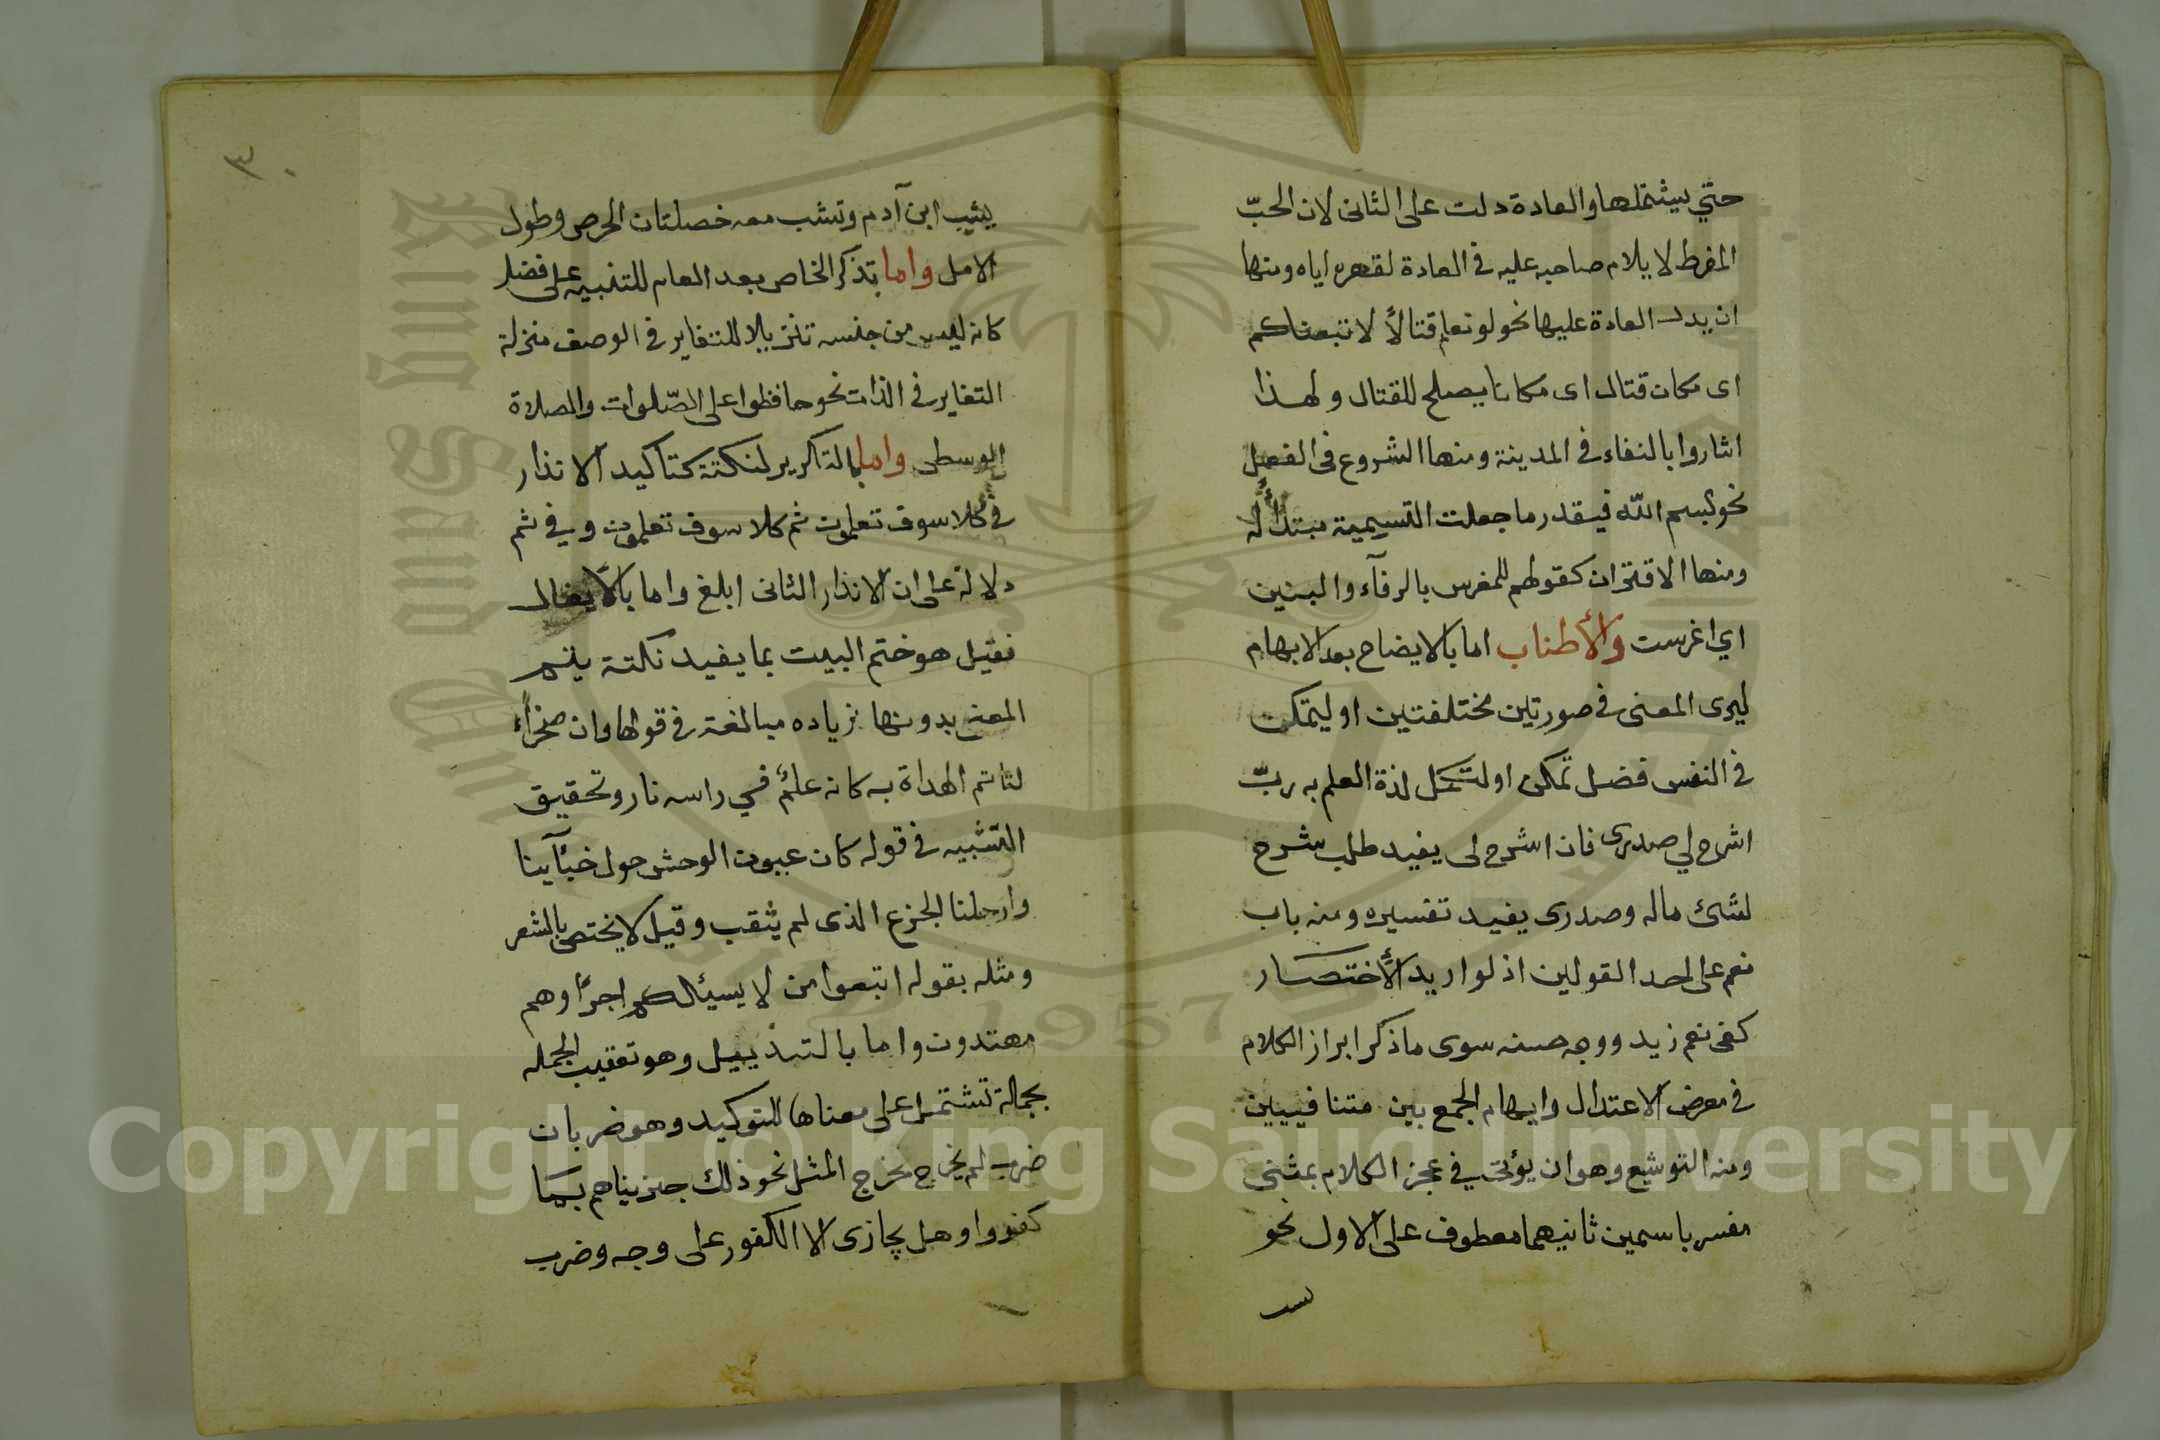 حتي يشتملها والعادة دلت على الثانى لان الحبّ
المفرط لا يلام صاحبه عليه في العادة لقهره اياه ومنها
ان يدل العادة عليها نحو لو نعلم قتالاً لاتبعناكم
اى مكان قتال اى مكانا يصلح للقتال ولهذا
اشاروا بالبقاء في المدينة ومنها الشروع في الفعل
نحو بسم اللّه فيقدر ما جعلت التسمية مبتدأ له
ومنها الاقتران كقولهم للمغرس بالرفآء والبنين
اي اغرست والأطناب اما بالايضاح بعد الابهام
ليرى المعنى في صورتين مختلفتين او ليتمكن
في النفس فضل تمكن او لتكمل لذة العلم به ربّ
اشرح لي صدرى فان اشرح لى يفيد طلب شرح
لشئ ماله وصدرى يفيد تفسيره ومنه باب
نعم على احد القولين اذ لو اريد الأختصار
كفى نعم زيد ووجه حسنه سوى ما ذكر ابراز الكلام
في معرض الاعتدال وايهام الجمع بين متنافيين
ومنه التوشيع وهو ان يؤتى في عجز الكلام بمثنى
مفسر باسمين ثانيهما معطوف على الاول نحو
٣
يشيب ابن آدم وتشب معه خصلتان الحرص وطول
الامل واما بذكر الخاص بعد العام للتنبيه على فضله
كانه ليس من جنسه تنزيلا للتغاير في الوصف منزلة
التغاير في الذات نحو حافظوا على الصّلوات والصلاة
الوسطى واما بالتكرير لنكتة كتاكيد الانذار
في كلا سوف تعلمون ثم كلا سوف تعلمون وفي ثم
دلالة على ان الانذار الثانى ابلغ واما بالايغال
فقيل هو ختم البيت بما يفيد نكتة يتم
المعنى بدونها زياده مبالغة في قولها وان صخراً
لتاتم الهداة به كانه علمٌ في راسه نار وتحقيق
التشبيه في قوله كان عيون الوحش حول خبآينا
وارحلنا الجزع الذى لم يثقب وقيل لا يختص بالشعر
ومثله بقوله اتبعوا من لا يسيئلكم اجراً وهم
مهتدون واما بالتذييل وهو تعقيب الجمله
بجملة تشتمل على معناها للتوكيد وهو ضربان
ضرب لم يخرج مخرج المثل نحو ذلك جزيناهم بما
كفروا وهل يجازى الا الكفور على وجه وضرب
Copyright © King Saud University
1957